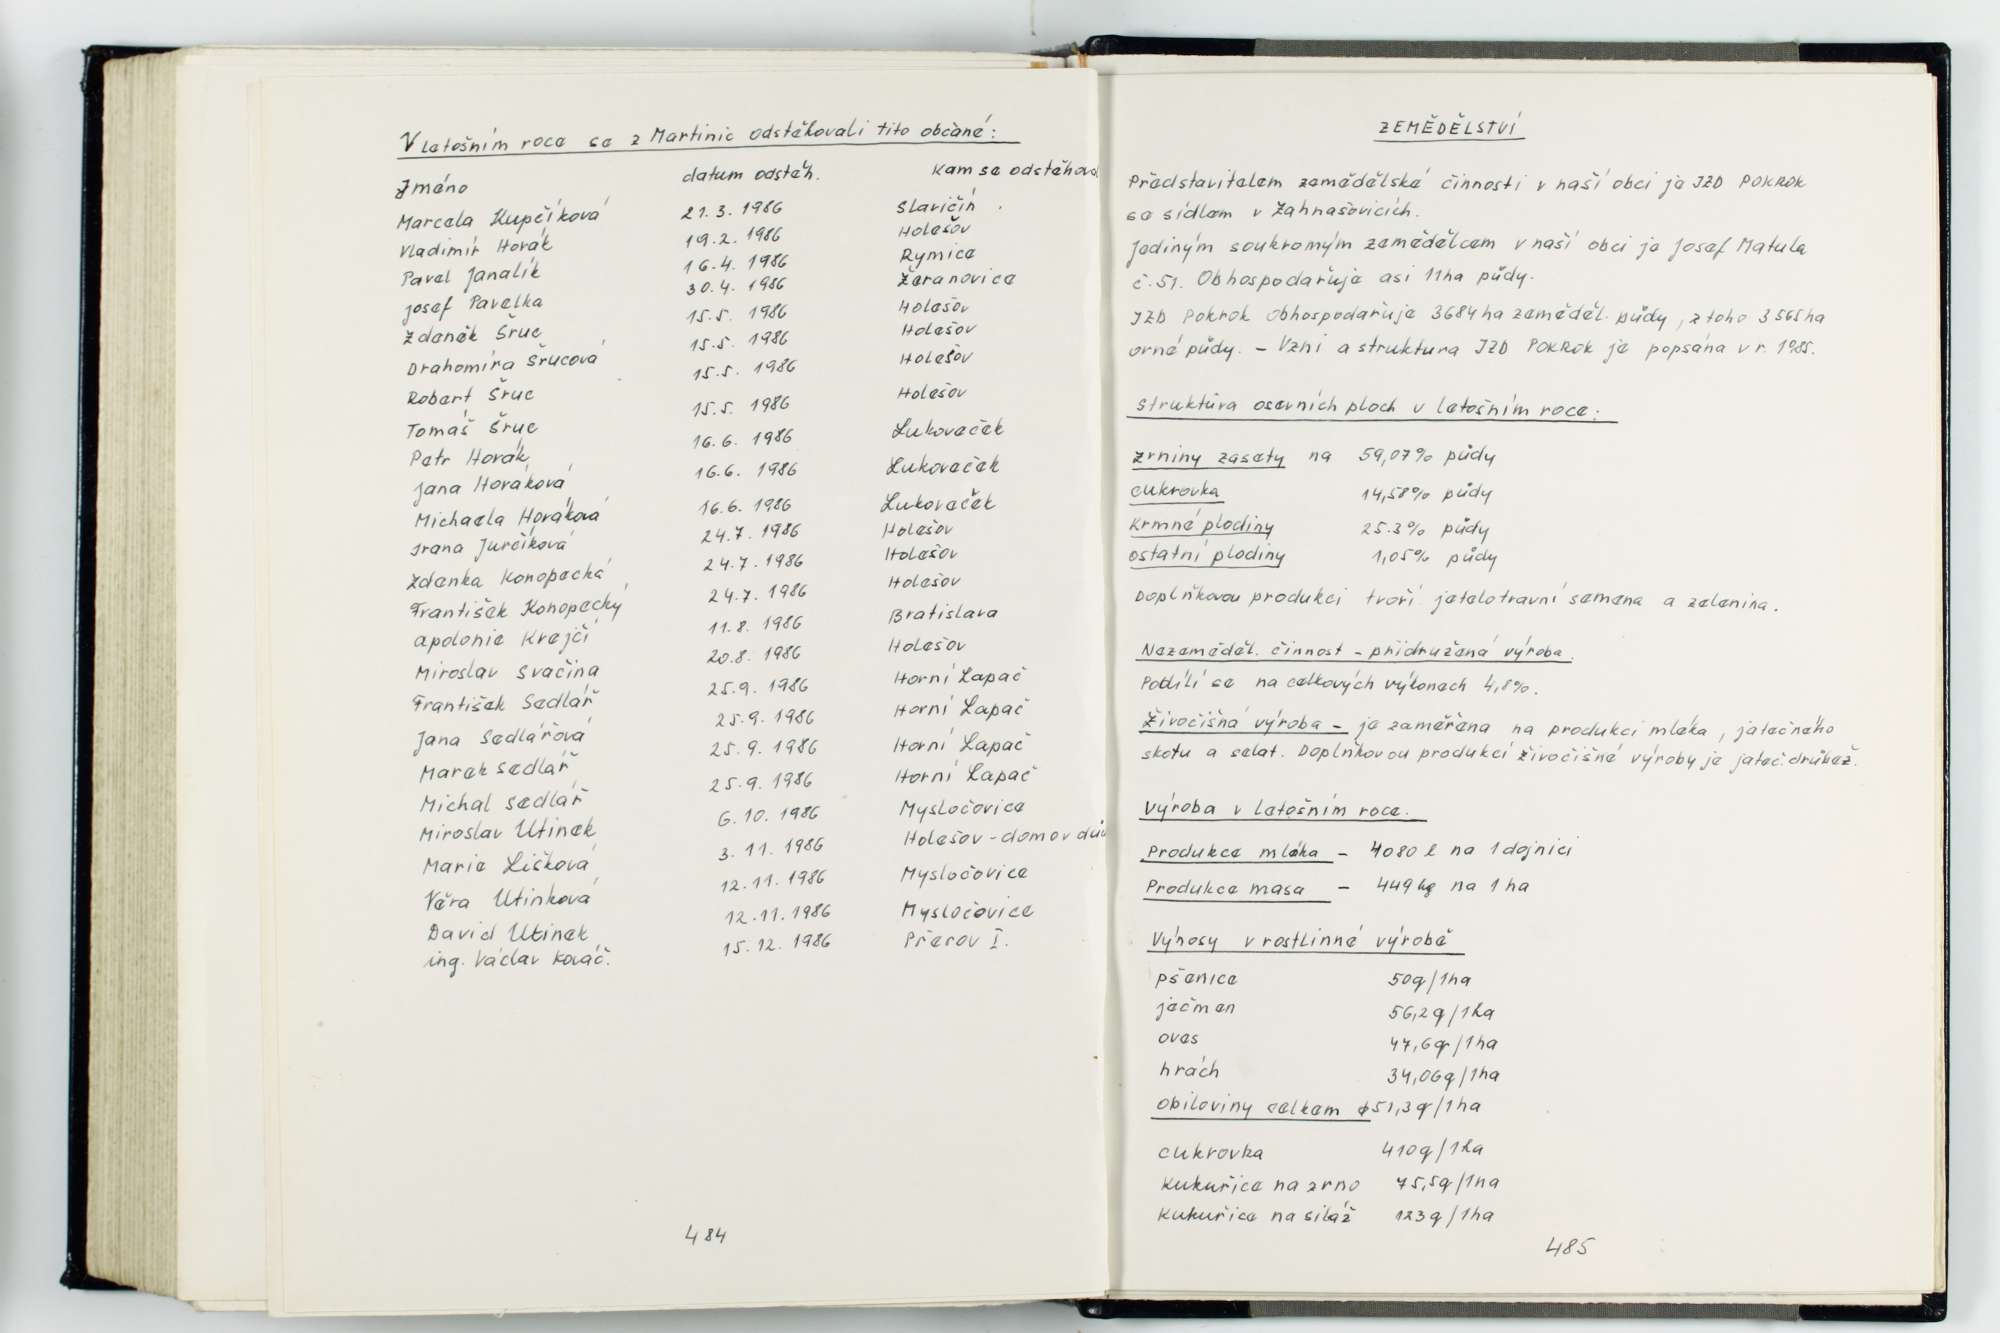 V letošním roce se z Martinic odstěhovali tito občané:
Jméno datum odstěh. Kam se odstěhoval
Marcela Kupčíková 21.3. 1986 Slavičín
Vladimír Horák 19.2. 1986 Holešov
Pavel Janalík 16.4. 1986 Rymice
Josef Pavelka 30.4. 1986 Žeranovice
Zdeněk Šruc 15.5. 1986 Holešov
Drahomíra Šrucová 15.5. 1986 Holešov
Robert Šruc 15.5. 1986 Holešov
Tomáš Šruc 15.5. 1986 Holešov
Petr Horák 16.6. 1986 Lukoveček
Jana Horáková 16.6. 1986 Lukoveček
Michaela Horáková 16.6. 1986 Lukoveček
Irena Jurčíková 24.7. 1986 Holešov
Zdenka Konopecká 24.7. 1986 Holešov
František Konopecký 24.7. 1986 Holešov
Apolonie Krejčí 11.8. 1986 Bratislava
Miroslav Svačina 20.8. 1986 Holešov
František Sedlář 25.9. 1986 Horní Lapač
Jana Sedlářová 25.9. 1986 Horní Lapač
Marek Sedlář 25.9. 1986 Horní Lapač
Michal Sedlář 25.9. 1986 Horní Lapač
Miroslav Utinek 6.10. 1986 Mysločovice
Marie Ličková 3.11. 1986 Holešov - domov
Věra Utinková 12.11. 1986 Mysločovice
David Utinek 12.11. 1986 Mysločovice
ing. Václav Kováč. 15.12. 1986 Přerov I.
484
ZEMĚDĚLSTVÍ
Představitelem zemědělské činnosti v naší obci je JZD POKROK
se sídlem v Zahnašovicích.
Jediným soukromým zemědělcem v naší obci je Josef Matula
č.51. Obhospodařuje asi 11ha půdy.
JZD Pokrok obhospodařuje 3684 ha zeměděl. půdy, z toho 3565ha
orné půdy. - Vzni a struktura JZD POKROK je popsána v r. 1985.
Struktůra osevních ploch v letošním roce:
zrniny zasety na 59,07% půdy
cukrovka 14,58% půdy
Krmné plodiny 25.3% půdy
ostatní plodiny 1,05% půdy
Doplňkovou produkci tvoří jetelotravní semena a zelenina.
Nezeměděl. činnost - přidružená výroba.
Podílí se na celkových výkonech 4,8%.
Živočišná výroba - je zaměřena na produkci mléka, jatečného
skotu a selat. Doplňkovou produkcí živočišné výroby je jateč. drůbež.
Výroba v letošním roce.
Produkce mléka - 4080 l na 1 dojnici
Produkce masa - 449 kg na 1 ha
Výnosy v rostlinné výrobě
pšenice 50q/1ha
ječmen 56,2q/1ha
oves 47,6q/1ha
hrách 34,06q/1ha
obiloviny celkem ϕ51,3q/1ha
cukrovka 410q/1ha
Kukuřice na zrno 75,5q/1ha
Kukuřice na siláž 123q/1ha
485